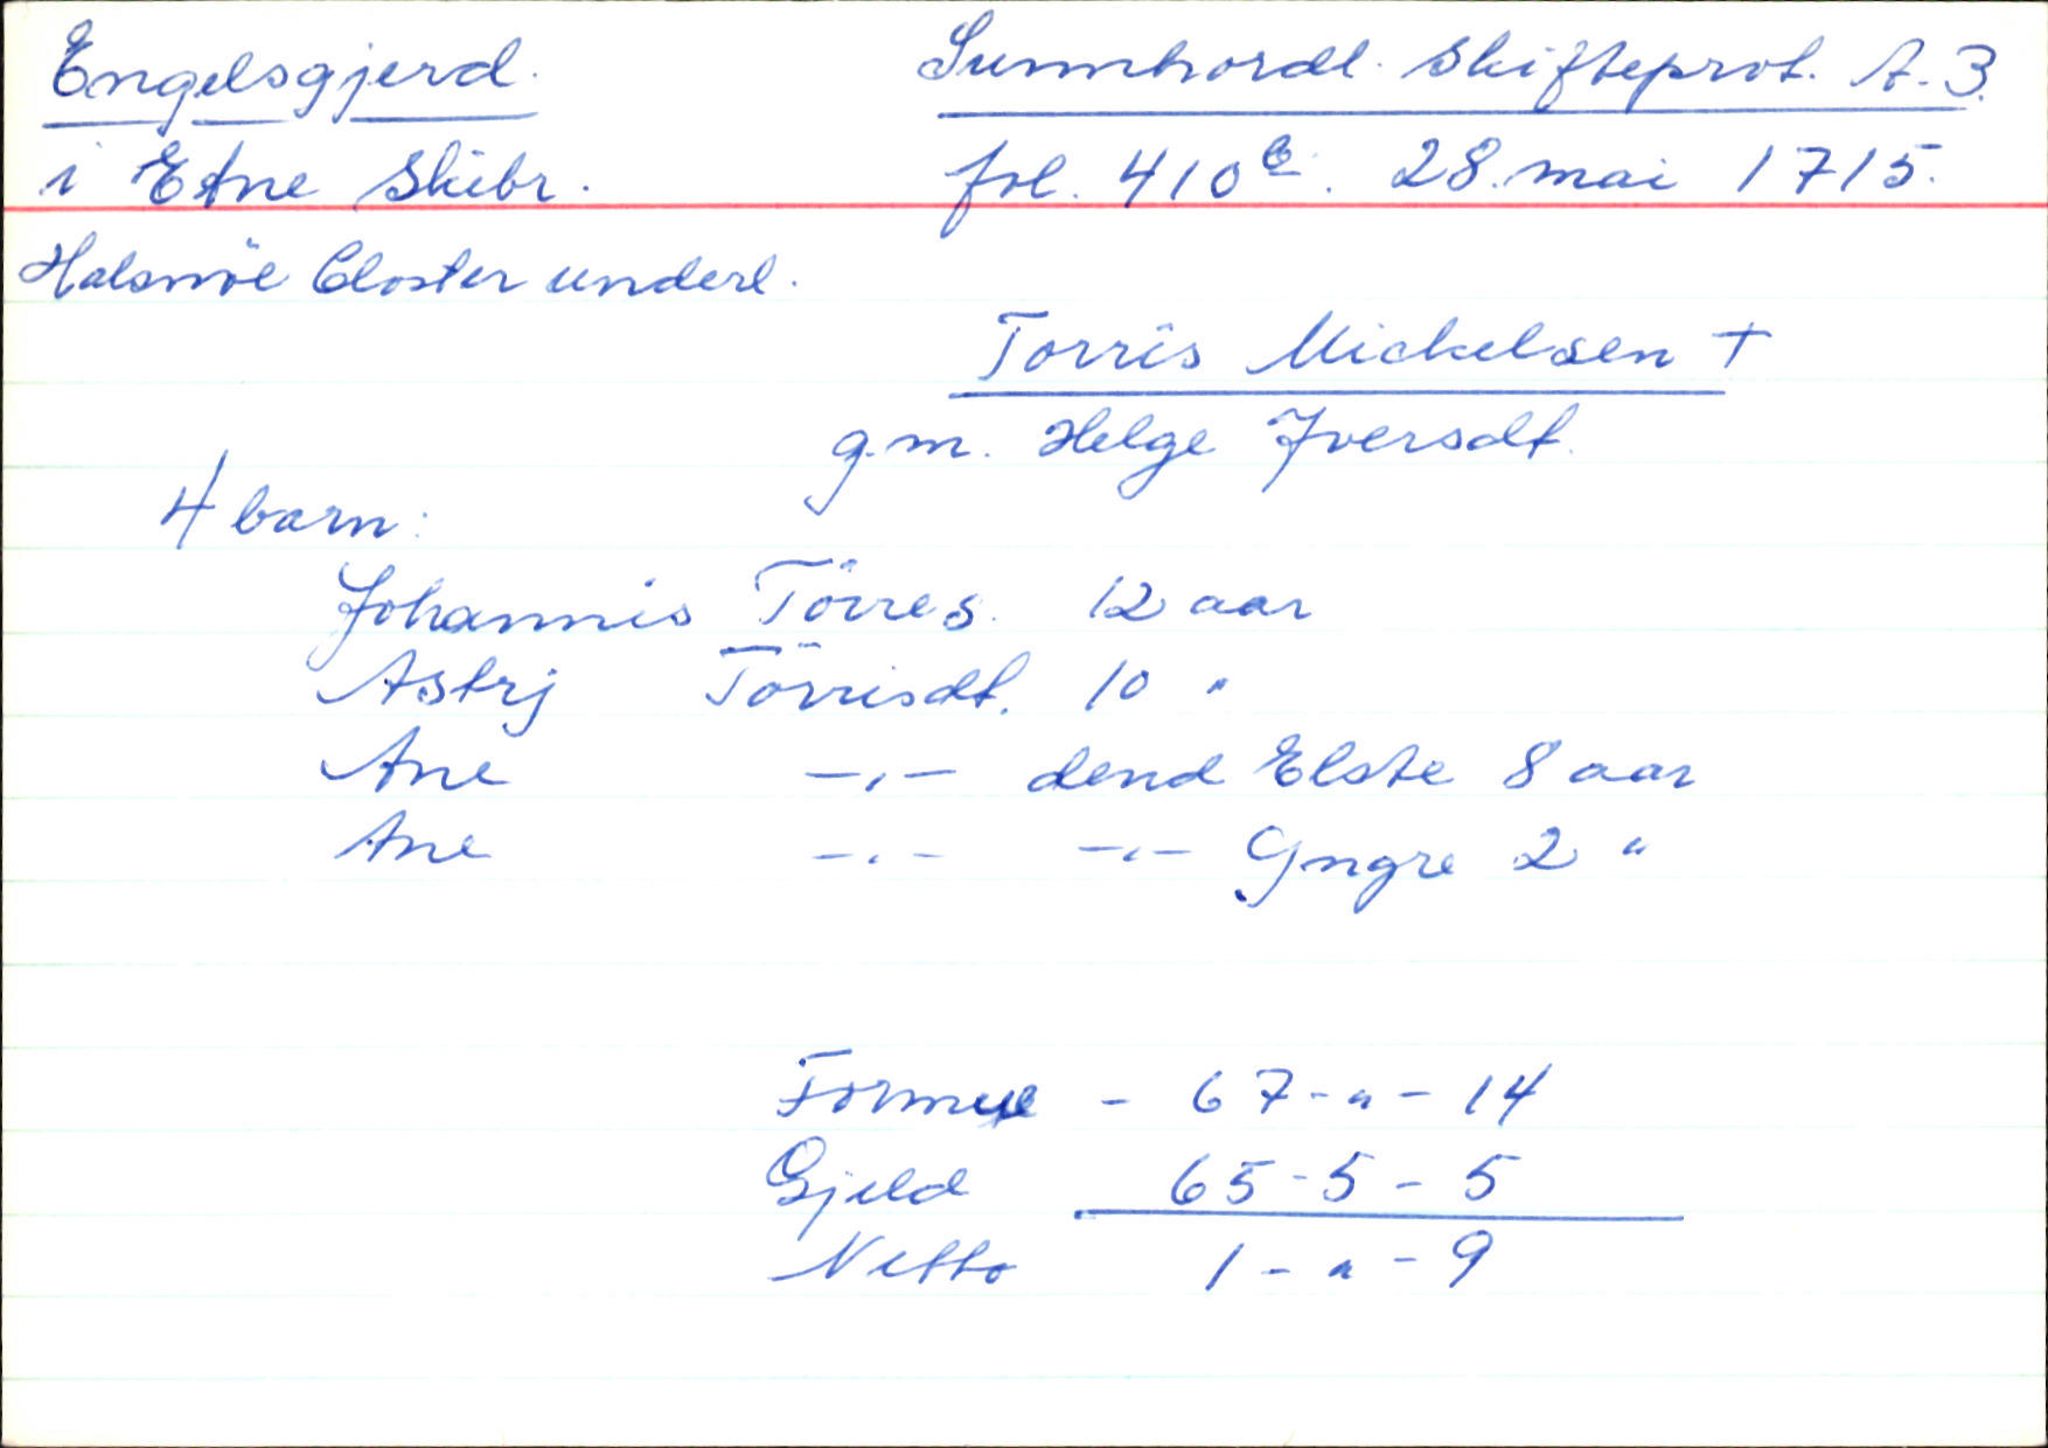 Engelsgjerd. Sunnhordl. Skifteprot. A.3.
i Etne Skibr. fol. 410b. 28. mai 1715.
Halsnöe Closter underl.
Torris Mickelsen †
g.m. Helge Iversdt.
4 barn:
Johannis Törres. 12 aar
Astrj Törrisdt. 10 "
Ane -"- dend Elste 8 aar
Ane -"- -"- Yngre 2 "
Formue - 67-"-14
Gjeld 65-5-5
Netto 1-"-9